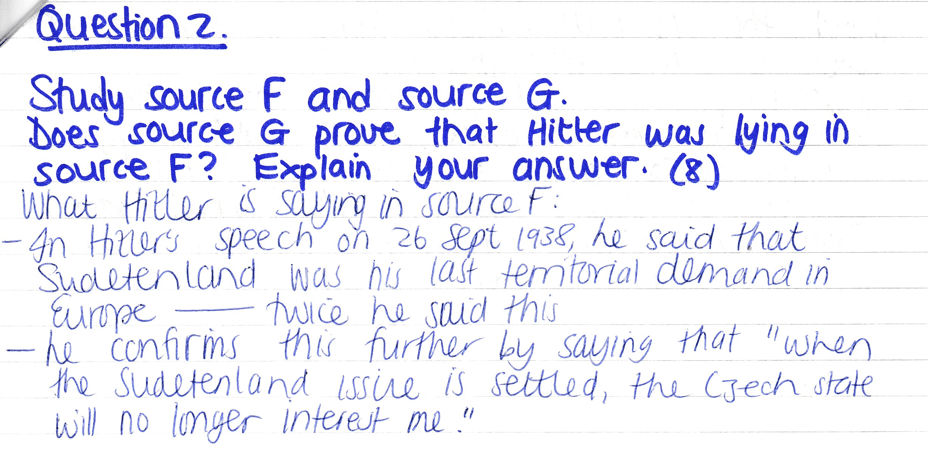 Question 2.
Study source F and source G.
Does source G prove that Hitler was lying in
source F? Explain your answer. (8)
What Hitler is saying in source F:
- In Hitler's speech on 26 Sept 1938, he said that
Sudetenland was his last territorial demand in
Europe — twice he said this
- he confirms this further by saying that "when
the Sudetenland issue is settled, the Czech state
will no longer interest me."